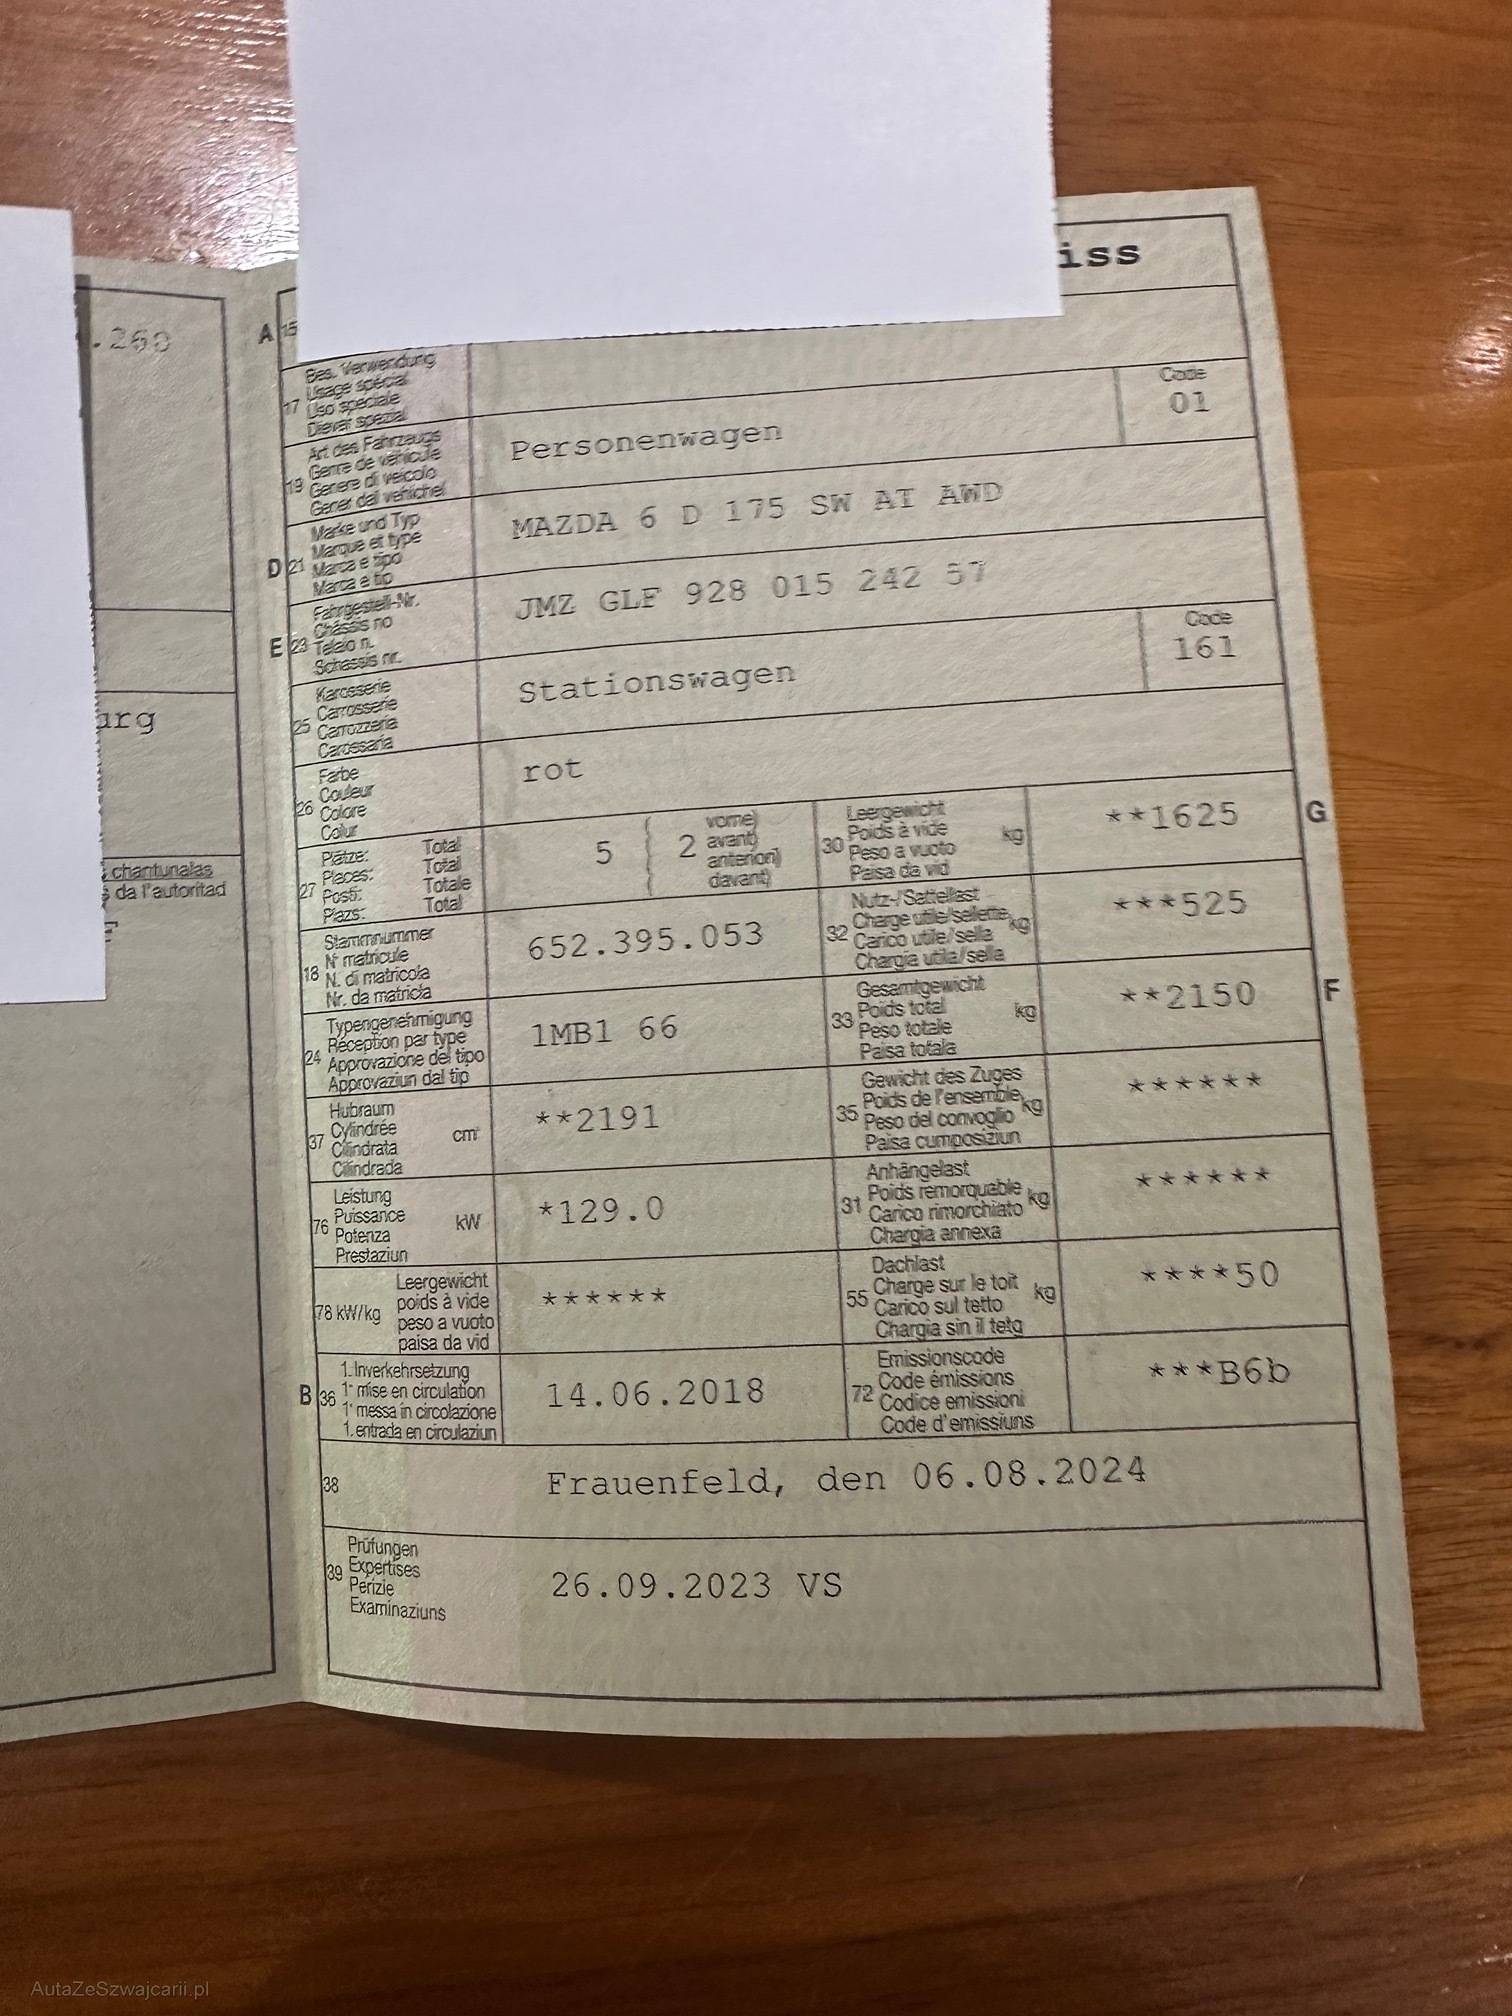 .260
urg
chantunalas
da l'autoritad
iss
A 15
17 Bes. Verwendung
Usage spécial
Uso speciale
Diever spezial
19 Art des Fahrzeugs
Genre de véhicule
Genere di veicolo
Gener dal vehichel
Personenwagen
Code
01
D 21 Marke und Typ
Marque et type
Marca e tipo
Marca e tip
MAZDA 6 D 175 SW AT AWD
E 23 Fahrgestell-Nr.
Châssis no
Telaio n.
Schassis nr.
JMZ GLF 928 015 242 57
25 Karosserie
Carrosserie
Carrozzeria
Carossaria
Stationswagen
Code
161
26 Farbe
Couleur
Colore
Colur
rot
27 Plätze: Total
Places: Total
Posti: Totale
Plazs: Total
5 2
vorne)
avant)
anteriori)
davant)
30 Leergewicht
Poids à vide kg
Peso a vuoto
Paisa da vid
**1625
G
18 Stammnummer
N° matricule
N. di matricola
Nr. da matricla
652.395.053
32 Nutz-/Sattellast
Charge utile/sellette kg
Carico utile/sella
Chargia utila/sella
***525
24 Typengenehmigung
Réception par type
Approvazione del tipo
Approvaziun dal tip
1MB1 66
33 Gesamtgewicht
Poids total kg
Peso totale
Paisa totala
**2150
F
37 Hubraum
Cylindrée
Cilindrata cm³
Cilindrada
**2191
35 Gewicht des Zuges
Poids de l'ensemble kg
Peso del convoglio
Paisa cumposiziun
******
76 Leistung
Puissance kW
Potenza
Prestaziun
*129.0
31 Anhängelast
Poids remorquable kg
Carico rimorchiato
Chargia annexa
******
78 kW/kg Leergewicht
poids à vide
peso a vuoto
paisa da vid
******
55 Dachlast
Charge sur le toit kg
Carico sul tetto
Chargia sin il tetg
****50
B 36 1. Inverkehrsetzung
1re mise en circulation
1a messa in circolazione
1. entrada en circulaziun
14.06.2018
72 Emissionscode
Code émissions
Codice emissioni
Code d'emissiuns
***B6b
38 Frauenfeld, den 06.08.2024
39 Prüfungen
Expertises
Perizie
Examinaziuns
26.09.2023 VS
AutaZeSzwajcarii.pl